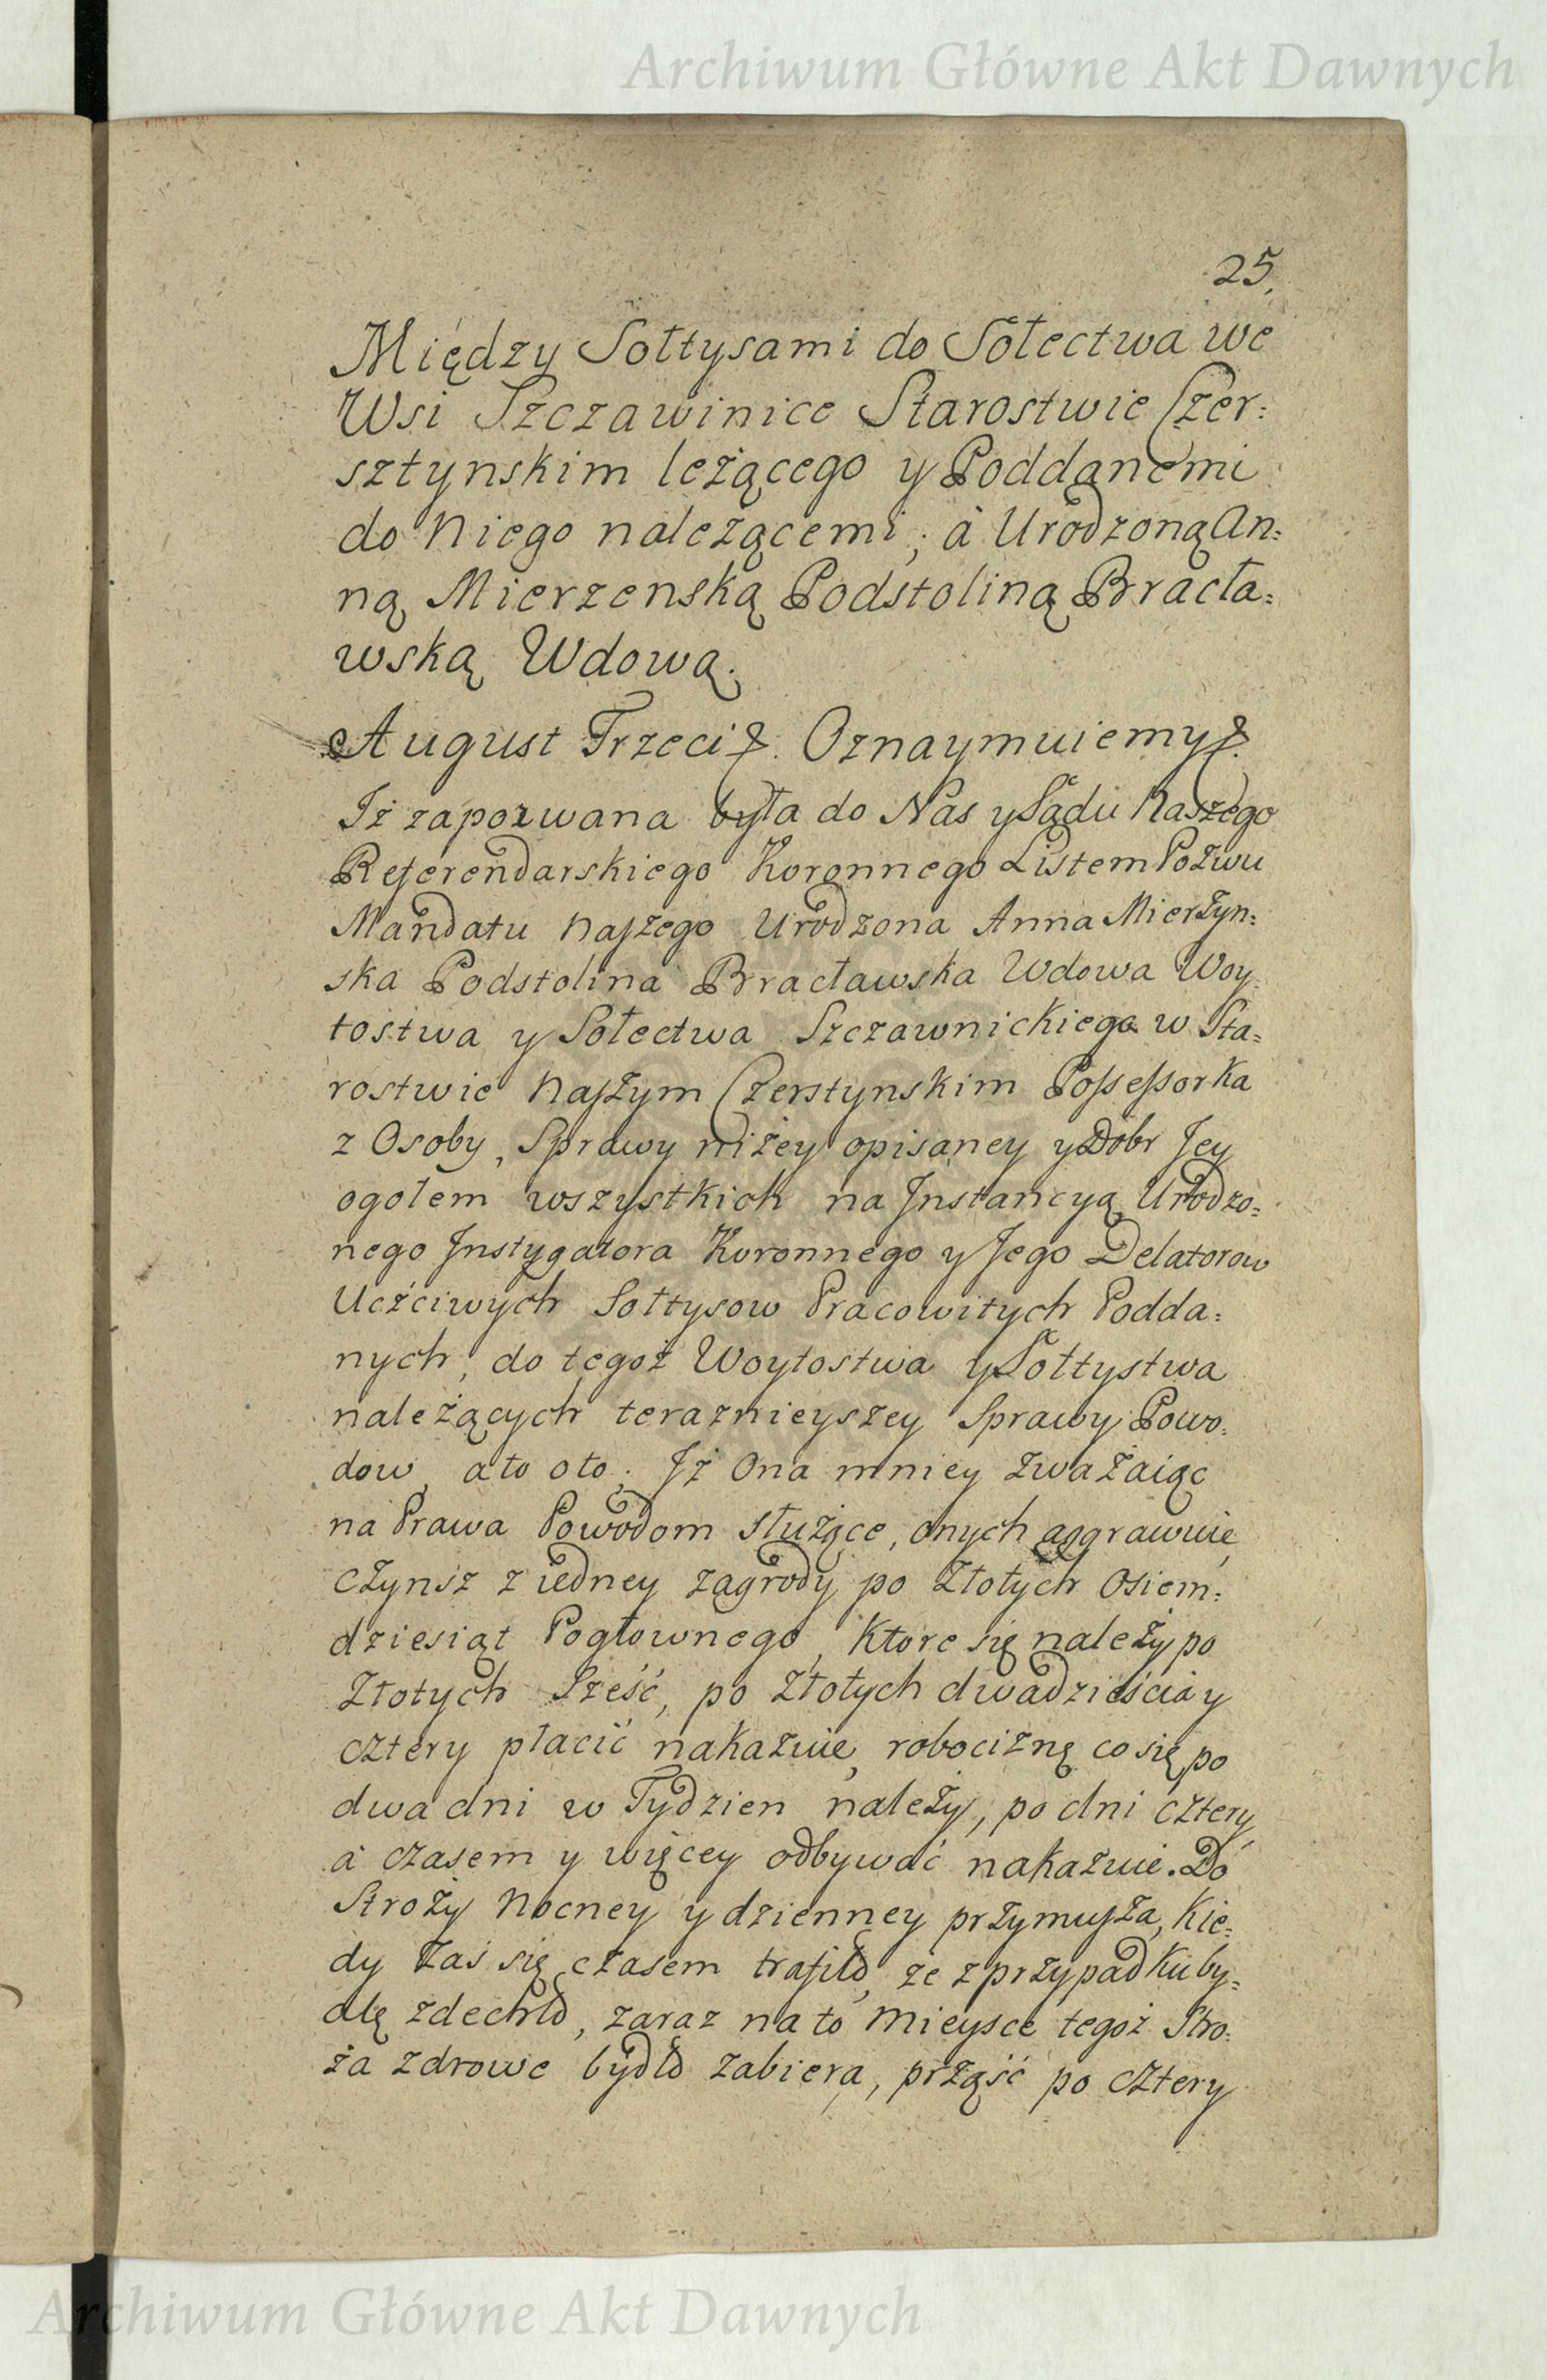 Archiwum Główne Akt Dawnych
25.
Między Sołtysami do Sołectwa we
Wsi Szczawinice Starostwie Czer:
sztynskim leżącego y Poddanemi
do Niego należącemi, à Urodzoną An:
ną Mierzenską Podstoliną Bracła:
wską Wdową.
August Trzeci &. Oznaymuiemy &.
Iż zapozwana była do Nas y Sądu Naszego
Referendarskiego Koronnego Listem Pozwu
Mandatu Naszego Urodzona Anna Mierżyn:
ska Podstolina Bracławska Wdowa Woy:
tostwa y Sołectwa Szczawnickiego w Sta:
rostwie Naszym Czerstynskim Possessorka
z Osoby, Sprawy niżey opisaney y Dobr Jey
ogołem wszystkich na Instancyą Urodzo:
nego Instygatora Koronnego y Jego Delatorow
Uczciwych Sołtysow Pracowitych Podda:
nych, do tegoż Woytostwa y Sołtystwa
należących teraznieyszey Sprawy Powo:
dow, a to oto; Iż Ona mniey zważaiąc
na Prawa Powodom służące, onych aggrawuie,
czynsz z iedney zagrody po Złotych Osiem:
dziesiąt Pogłownego, Ktore się należy po
Złotych Sześć, po Złotych dwadzieścia y
cztery płacić nakazuie, robociznę co się po
dwa dni w Tydzien należy, po dni cztery
à czasem y więcey odbywać nakazuie. Do
Stroży Nocney y dzienney przymusza, Kie:
dy zaś się czasem trafiło, że z przypadku by:
dlę zdechło, zaraz na to mieysce tegoż Stro:
ża zdrowe bydło zabiera, prząść po cztery
Archiwum Główne Akt Dawnych